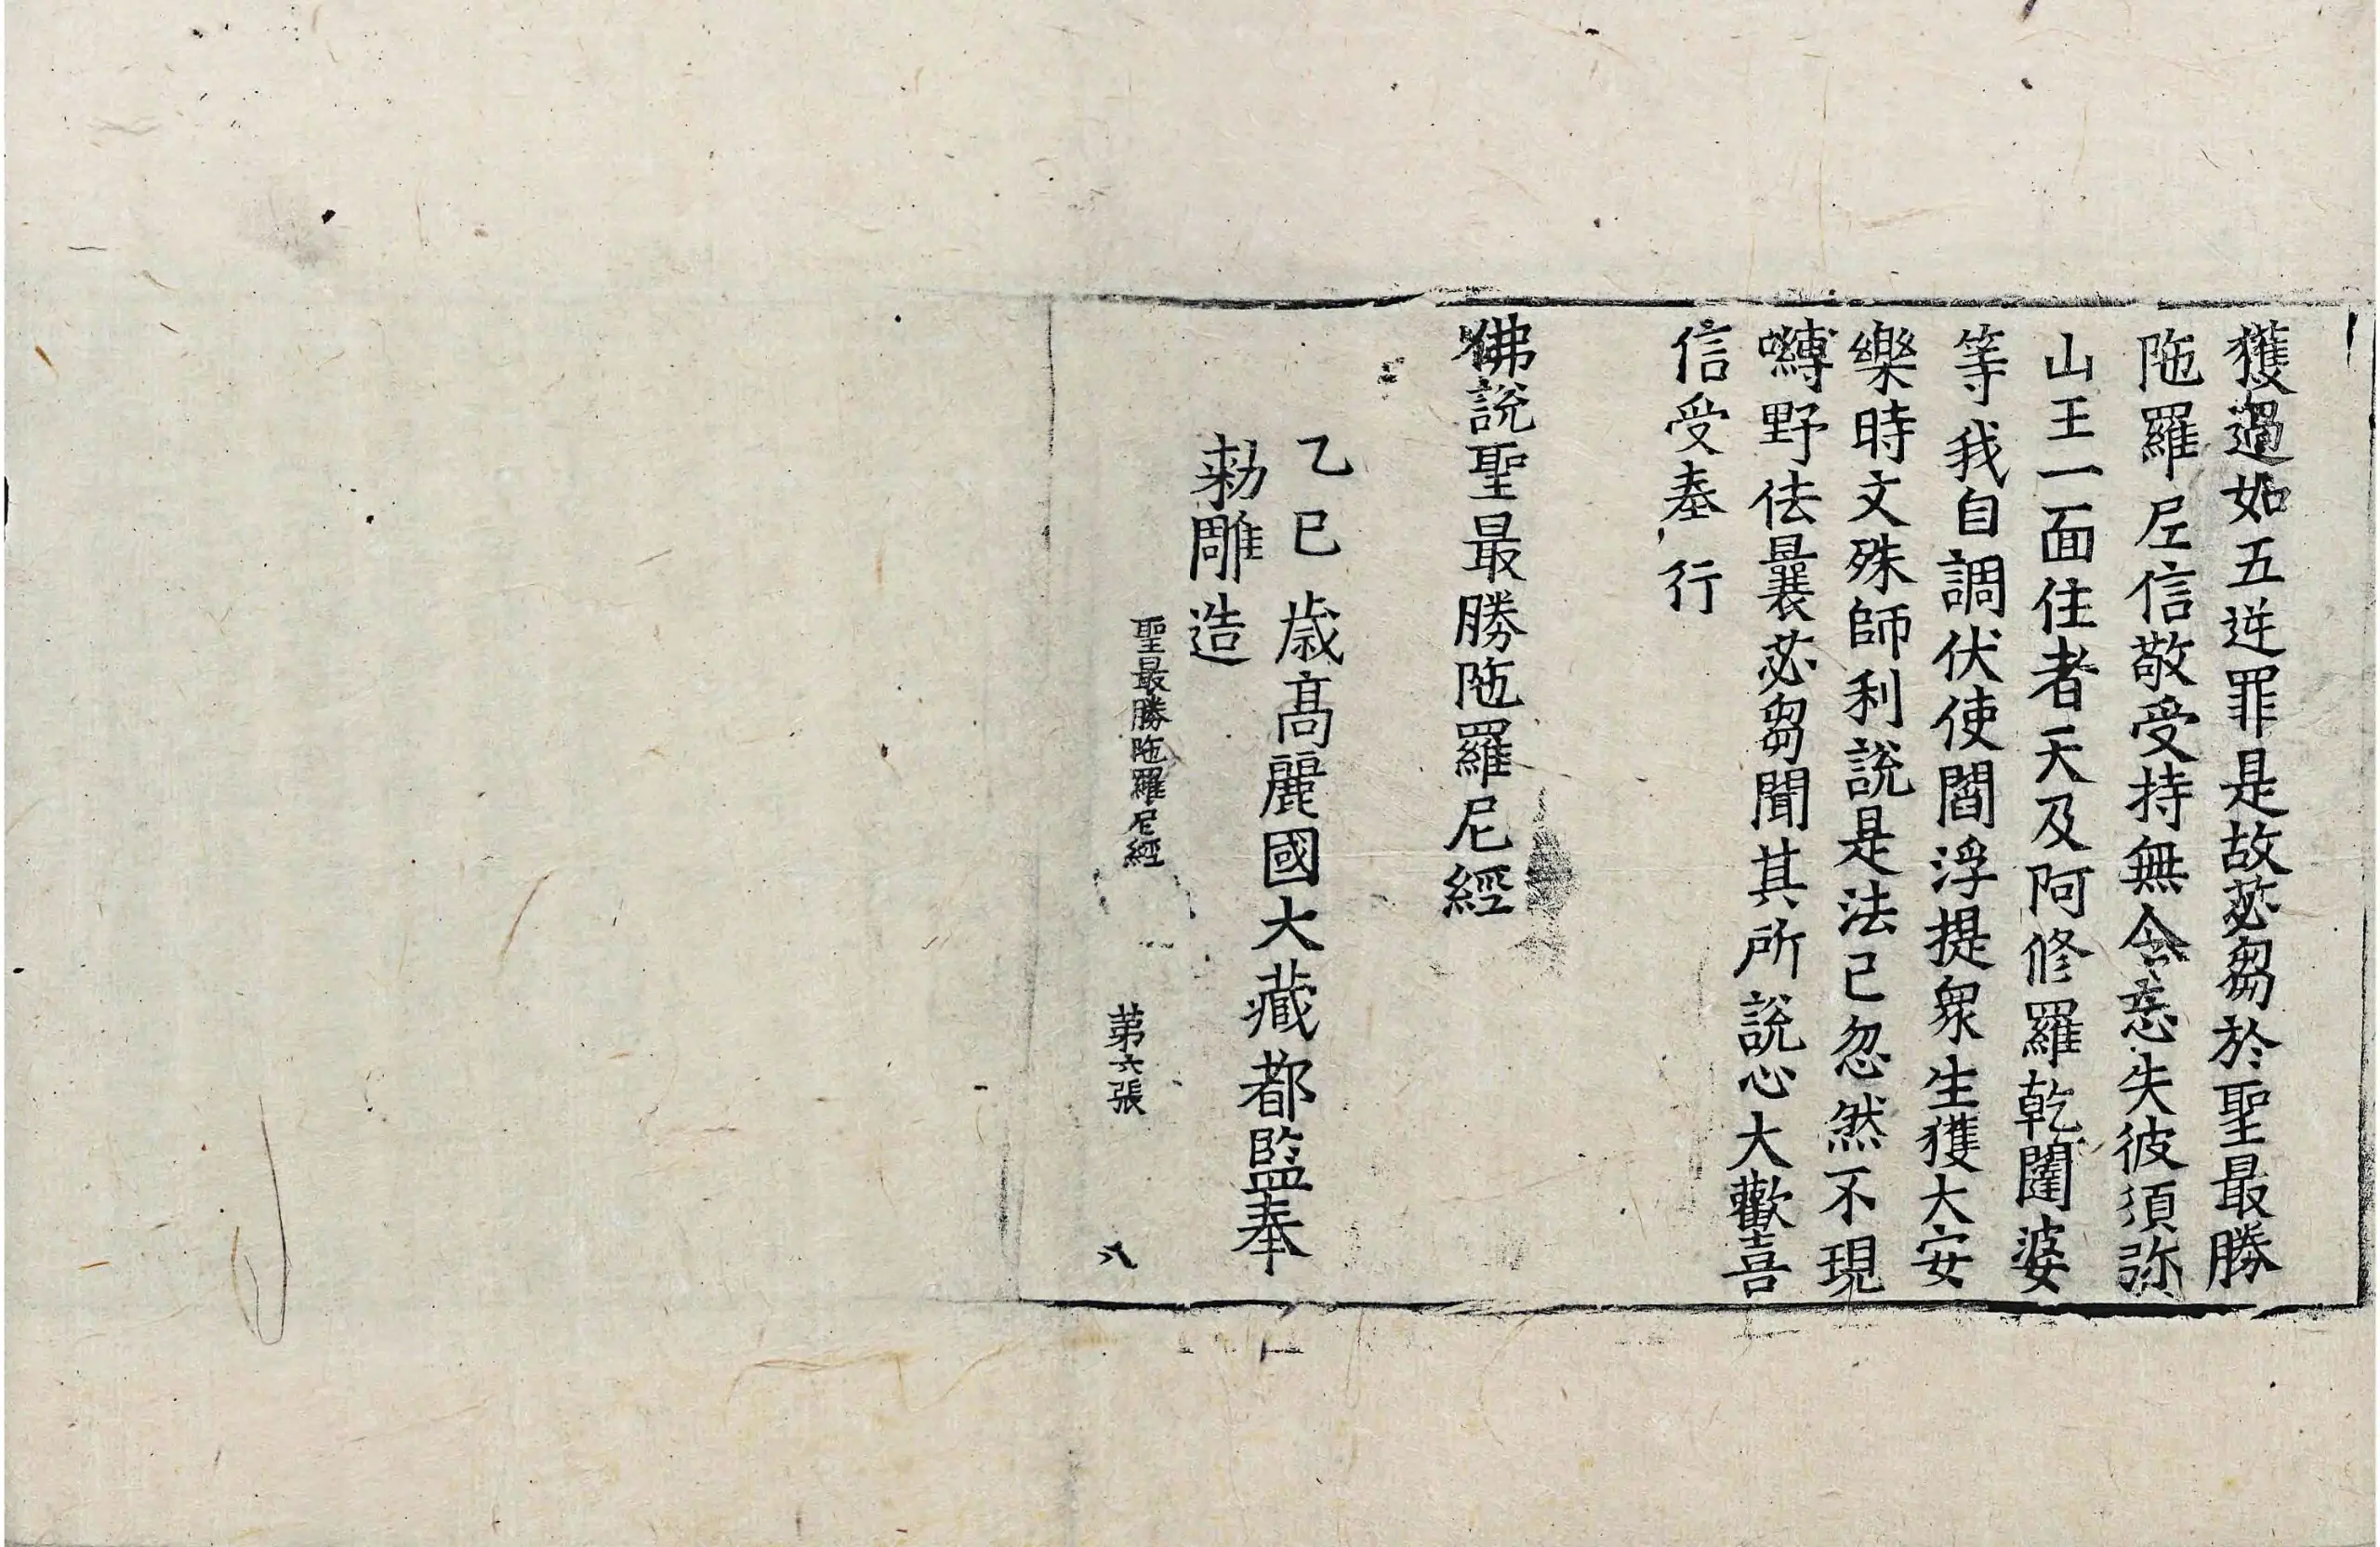 獲過如五逆罪是故苾芻於聖最勝
陁羅尼信敬受持無令忘失彼須弥
山王一面住者天及阿修羅乾闥婆
等我自調伏使閻浮提衆生獲大安
樂時文殊師利說是法已忽然不現
嚩野佉曩苾芻聞其所說心大歡喜
信受奉行
佛說聖最勝陁羅尼經
乙巳歲高麗國大藏都監奉
勑雕造
聖最勝陁羅尼經 苐六張 八